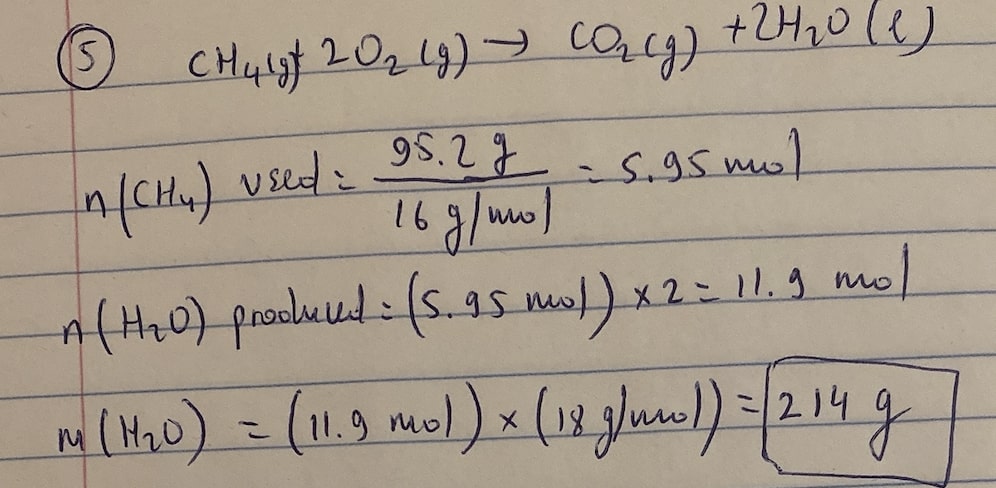 ⑤ CH₄(g)+ 2O₂ (g) → CO₂ (g) + 2H₂O (l)
n(CH₄) used = 95.2 g / 16 g/mol = 5.95 mol
n(H₂O) produced = (5.95 mol) × 2 = 11.9 mol
m(H₂O) = (11.9 mol) × (18 g/mol) = 214 g